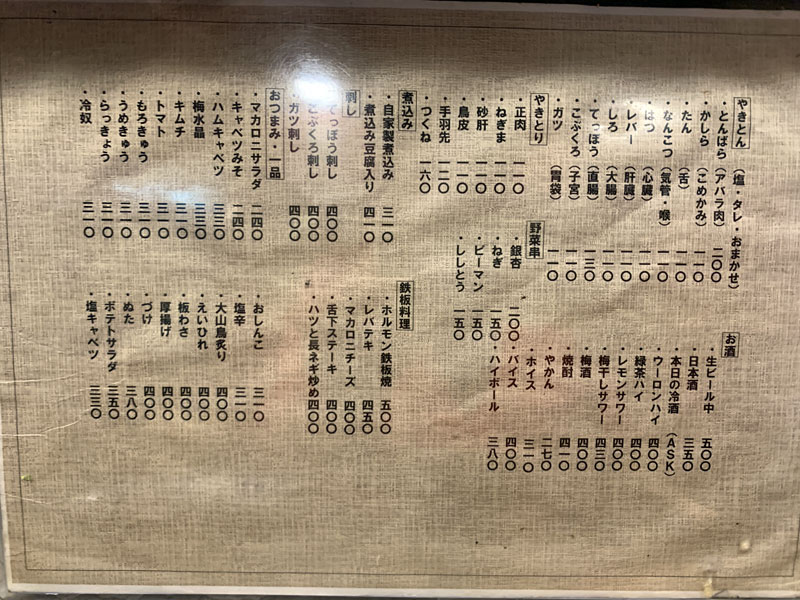 やきとん（塩・タレ・おまかせ）
・とんばら（アバラ肉）二〇〇
・かしら（こめかみ）一一〇
・たん（舌）一一〇
・なんこつ（気管・喉）一一〇
・はつ（心臓）一一〇
・レバー（肝臓）一一〇
・しろ（大腸）一一〇
・てっぽう（直腸）一三〇
・こぶくろ（子宮）一一〇
・ガツ（胃袋）一一〇
やきとり
・正肉 一一〇
・ねぎま 一一〇
・砂肝 一一〇
・鳥皮 一一〇
・手羽先 一二〇
・つくね 一六〇
野菜串
・銀杏 二〇〇
・ねぎ 一五〇
・ピーマン 一五〇
・ししとう 一五〇
お酒
・生ビール中 五〇〇
・日本酒 三五〇
・本日の冷酒（ASK）
・ウーロンハイ 四〇〇
・緑茶ハイ 四〇〇
・レモンサワー 四〇〇
・梅干しサワー 四三〇
・梅酒 四〇〇
・焼酎 四一〇
・やかん 二七〇
・ホイス 三一〇
・バイス 四〇〇
・ハイボール 三八〇
煮込み
・自家製煮込み 三一〇
・煮込み豆腐入り 四一〇
刺し
てっぽう刺し 四〇〇
こぶくろ刺し 四〇〇
・ガツ刺し 四〇〇
鉄板料理
・ホルモン鉄板焼 五〇〇
・レバテキ 四五〇
・マカロニチーズ 四〇〇
・舌下ステーキ 四〇〇
・ハツと長ネギ炒め 四〇〇
おつまみ・一品
・マカロニサラダ 二四〇
・キャベツみそ 二四〇
・ハムキャベツ 三三〇
・梅水晶 三三〇
・キムチ 三一〇
・トマト 三一〇
・もろきゅう 三一〇
・うめきゅう 三一〇
・らっきょう 三一〇
・冷奴 三一〇
・おしんこ 三一〇
・塩辛 三一〇
・大山鳥炙り 四〇〇
・えいひれ 四〇〇
・板わさ 四〇〇
・厚揚げ 四〇〇
・づけ 四〇〇
・ぬた 三八〇
・ポテトサラダ 三五〇
・塩キャベツ 三三〇